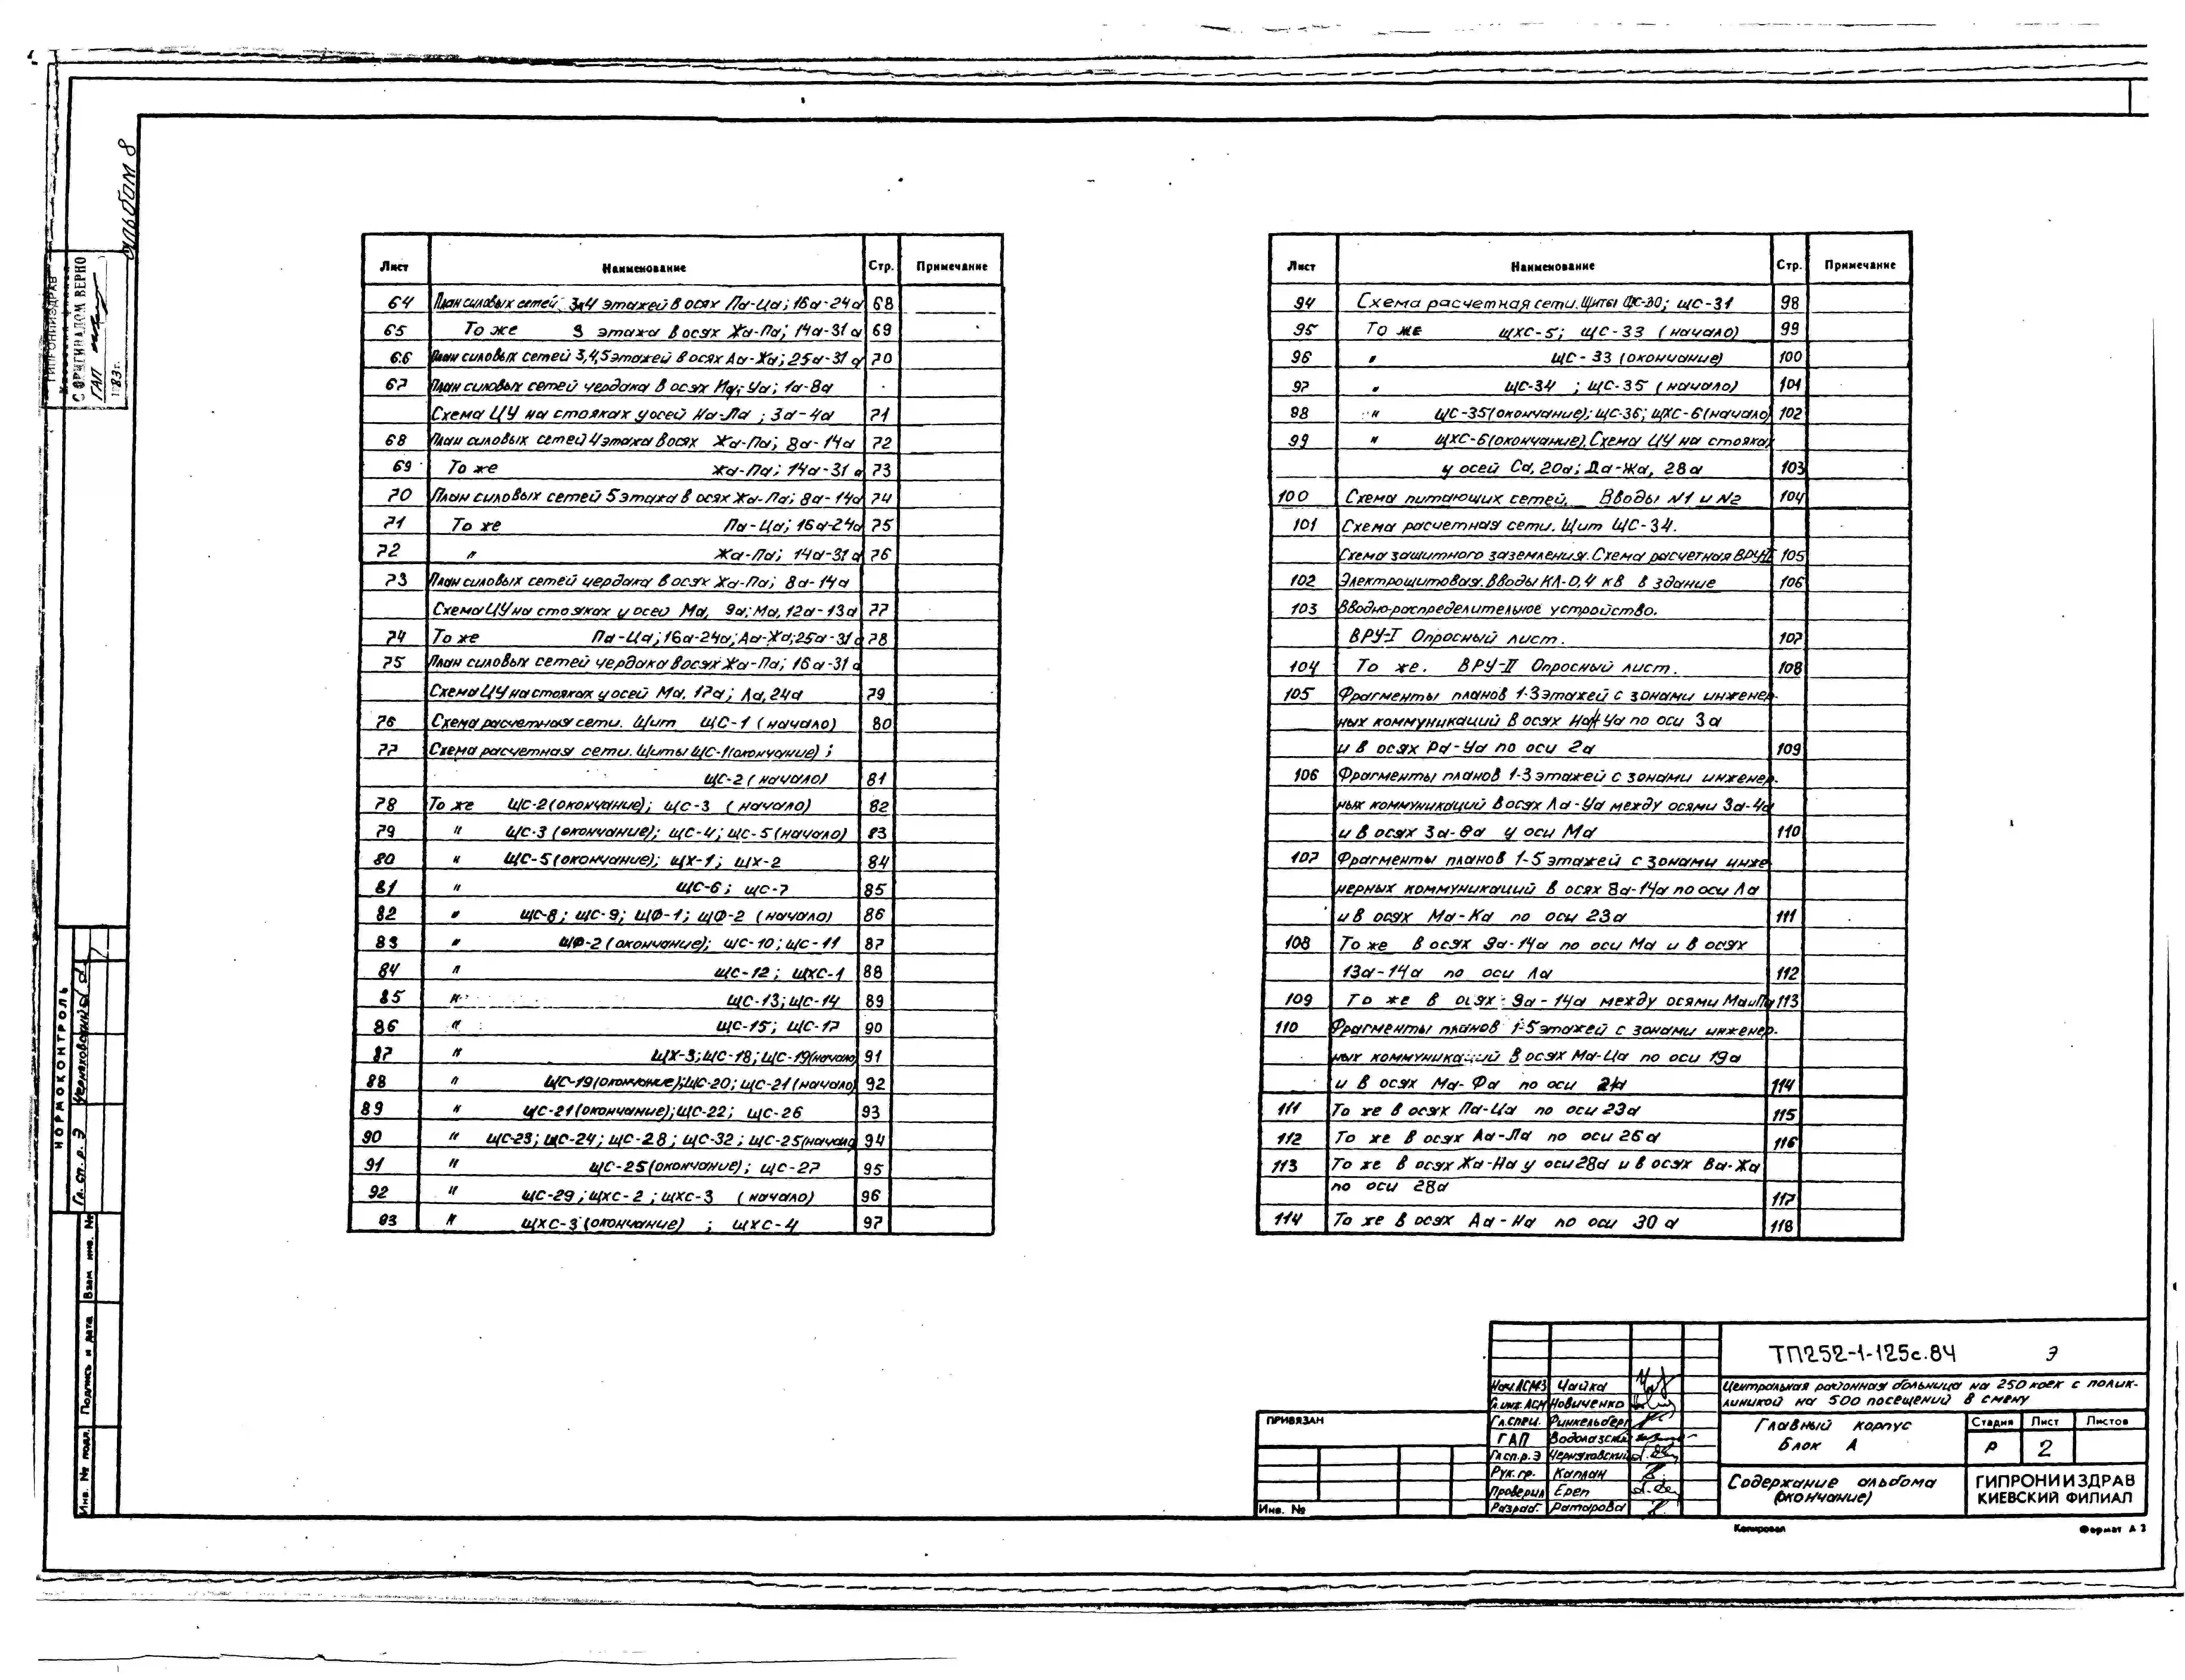 альбом 8
ГИПРОНИИЗДРАВ
С ОРИГИНАЛОМ ВЕРНО
ГАП
Лист Наименование Стр. Примечание
64 План силовых сетей 3и4 этажей в осях Па-Ца; 16а-24а 68
65 То же 3 этажа в осях Жа-Па; 14а-31а 69
66 План силовых сетей 3,4,5 этажей в осях Аа-Жа; 25а-31а 70
67 План силовых сетей чердака в осях Ма-Уа; 1а-8а
Схема ЦУ на стояках у осей На-Ла; 3а-4а 71
68 План силовых сетей 4 этажа в осях Жа-Па; 8а-14а 72
69 То же Жа-Па; 14а-31а 73
70 План силовых сетей 5 этажа в осях Жа-Па; 8а-14а 74
71 То же Па-Ца; 16а-24а 75
72 " Жа-Па; 14а-31а 76
73 План силовых сетей чердака в осях Жа-Па; 8а-14а
Схема ЦУ на стояках у осей Ма, 9а; Ма, 12а-13а 77
74 То же Па-Ца; 16а-24а; Аа-Жа; 25а-31а 78
75 План силовых сетей чердака в осях Жа-Па; 16а-31а
Схема ЦУ на стояках у осей Ма, 17а; Ла, 24а 79
76 Схема расчетная сети. Щит ЩС-1 (начало) 80
77 Схема расчетная сети. Щиты ЩС-1 (окончание);
ЩС-2 (начало) 81
78 То же ЩС-2 (окончание); ЩС-3 (начало) 82
79 " ЩС-3 (окончание); ЩС-4; ЩС-5 (начало) 83
80 " ЩС-5 (окончание); ЩХ-1; ЩХ-2 84
81 " ЩС-6; ЩС-7 85
82 " ЩС-8; ЩС-9; ЩФ-1; ЩФ-2 (начало) 86
83 " ЩФ-2 (окончание); ЩС-10; ЩС-11 87
84 " ЩС-12; ЩХС-1 88
85 " ЩС-13; ЩС-14 89
86 " ЩС-15; ЩС-17 90
87 " ЩХ-3; ЩС-18; ЩС-19 (начало) 91
88 " ЩС-19 (окончание); ЩС-20; ЩС-21 (начало) 92
89 " ЩС-21 (окончание); ЩС-22; ЩС-26 93
90 " ЩС-23; ЩС-24; ЩС-28; ЩС-32; ЩС-25 (начало) 94
91 " ЩС-25 (окончание); ЩС-27 95
92 " ЩС-29; ЩХС-2; ЩХС-3 (начало) 96
93 " ЩХС-3 (окончание) ; ЩХС-4 97
Лист Наименование Стр. Примечание
94 Схема расчетная сети. Щиты ЩС-30; ЩС-31 98
95 То же ЩХС-5; ЩС-33 (начало) 99
96 " ЩС-33 (окончание) 100
97 " ЩС-34 ; ЩС-35 (начало) 101
98 " ЩС-35 (окончание); ЩС-36; ЩХС-6 (начало) 102
99 " ЩХС-6 (окончание). Схема ЦУ на стояках
у осей Са, 20а; Да-Жа, 28а 103
100 Схема питающих сетей. Вводы N1 и N2 104
101 Схема расчетная сети. Щит ЩС-34.
Схема защитного заземления. Схема расчетная ВРУ-II 105
102 Электрощитовая. Вводы КЛ-0,4 кВ в здание 106
103 Вводно-распределительное устройство.
ВРУ-I Опросный лист. 107
104 То же. ВРУ-II Опросный лист. 108
105 Фрагменты планов 1-3 этажей с зонами инженер-
ных коммуникаций в осях На-Уа по оси 3а
и в осях Ра-Уа по оси 2а 109
106 Фрагменты планов 1-3 этажей с зонами инженер-
ных коммуникаций в осях Ла-Уа между осями 3а-4а
и в осях 3а-8а у оси Ма 110
107 Фрагменты планов 1-5 этажей с зонами инже
нерных коммуникаций в осях 8а-14а по оси Ла
и в осях Ма-Ка по оси 23а 111
108 То же в осях 9а-14а по оси Ма и в осях
13а-14а по оси Ла 112
109 То же в осях 9а-14а между осями Ма и Па 113
110 Фрагменты планов 1-5 этажей с зонами инженер-
ных коммуникаций в осях Ма-Ца по оси 19а
и в осях Ма-Фа по оси 114
111 То же в осях Па-Ца по оси 23а 115
112 То же в осях Аа-Ла по оси 26а 116
113 То же в осях Жа-На у оси 28а и в осях Ва-Жа
по оси 28а 117
114 То же в осях Аа-На по оси 30а 118
НОРМОКОНТРОЛЬ
Гл. сп. р. Э Черняховский
Взам инв. №
Подпись и дата
Инв. № подл.
ПРИВЯЗАН
Инв. №
Нач. АСМ3 Чайка
Гл.инж. АСМ Новиченко
Гл. спец. Финкельберг
ГАП Водолазский
Гл сп. р. Э Черняховский
Рук. гр. Каплан
Проверил Ереп
Разраб. Ратарова
ТП252-1-125с.84 Э
Центральная районная больница на 250 коек с полик-
линикой на 500 посещений в смену
Главный корпус
Блок А
Стадия Лист Листов
Р 2
Содержание альбома
(окончание)
ГИПРОНИИЗДРАВ
КИЕВСКИЙ ФИЛИАЛ
Копировал Формат А3